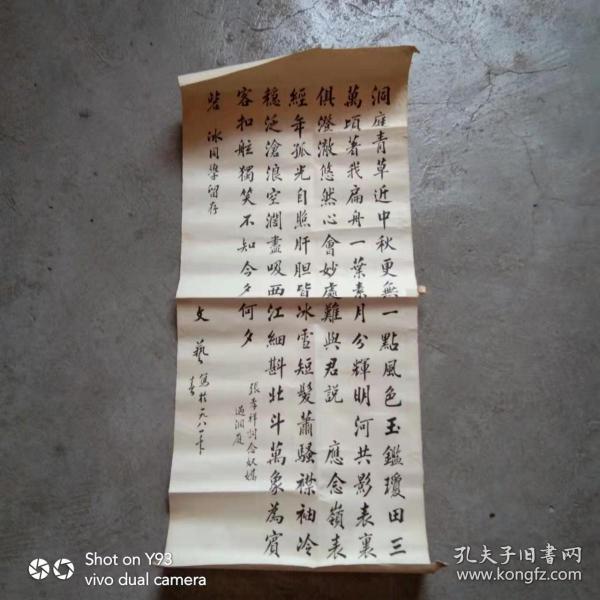 洞庭青草近中秋更無一點風色玉鑑瓊田三
萬頃著我扁舟一葉素月分輝明河共影表裏
俱澄澈悠然心會妙處難與君說 應念嶺表
經年孤光自照肝胆皆冰雪短髮蕭騷襟袖冷
穩泛滄浪空濶盡吸西江細斟北斗萬象為賓
客扣舷獨笑不知今夕何夕
張孝祥詞念奴嬌
過洞庭
冰同學留存
文藝
寫於一九八一年
Shot on Y93
vivo dual camera
孔夫子旧書网
www.kongfz.com